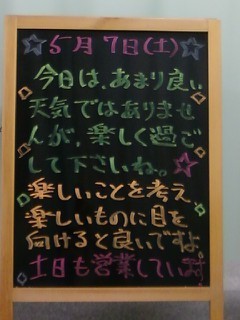 5月7日(土)
今日は、あまり良い
天気ではありませ
んが、楽しく過ご
して下さいね。
楽しいことを考え、
楽しいものに目を
向けると良いですよ。
土日も営業しています。